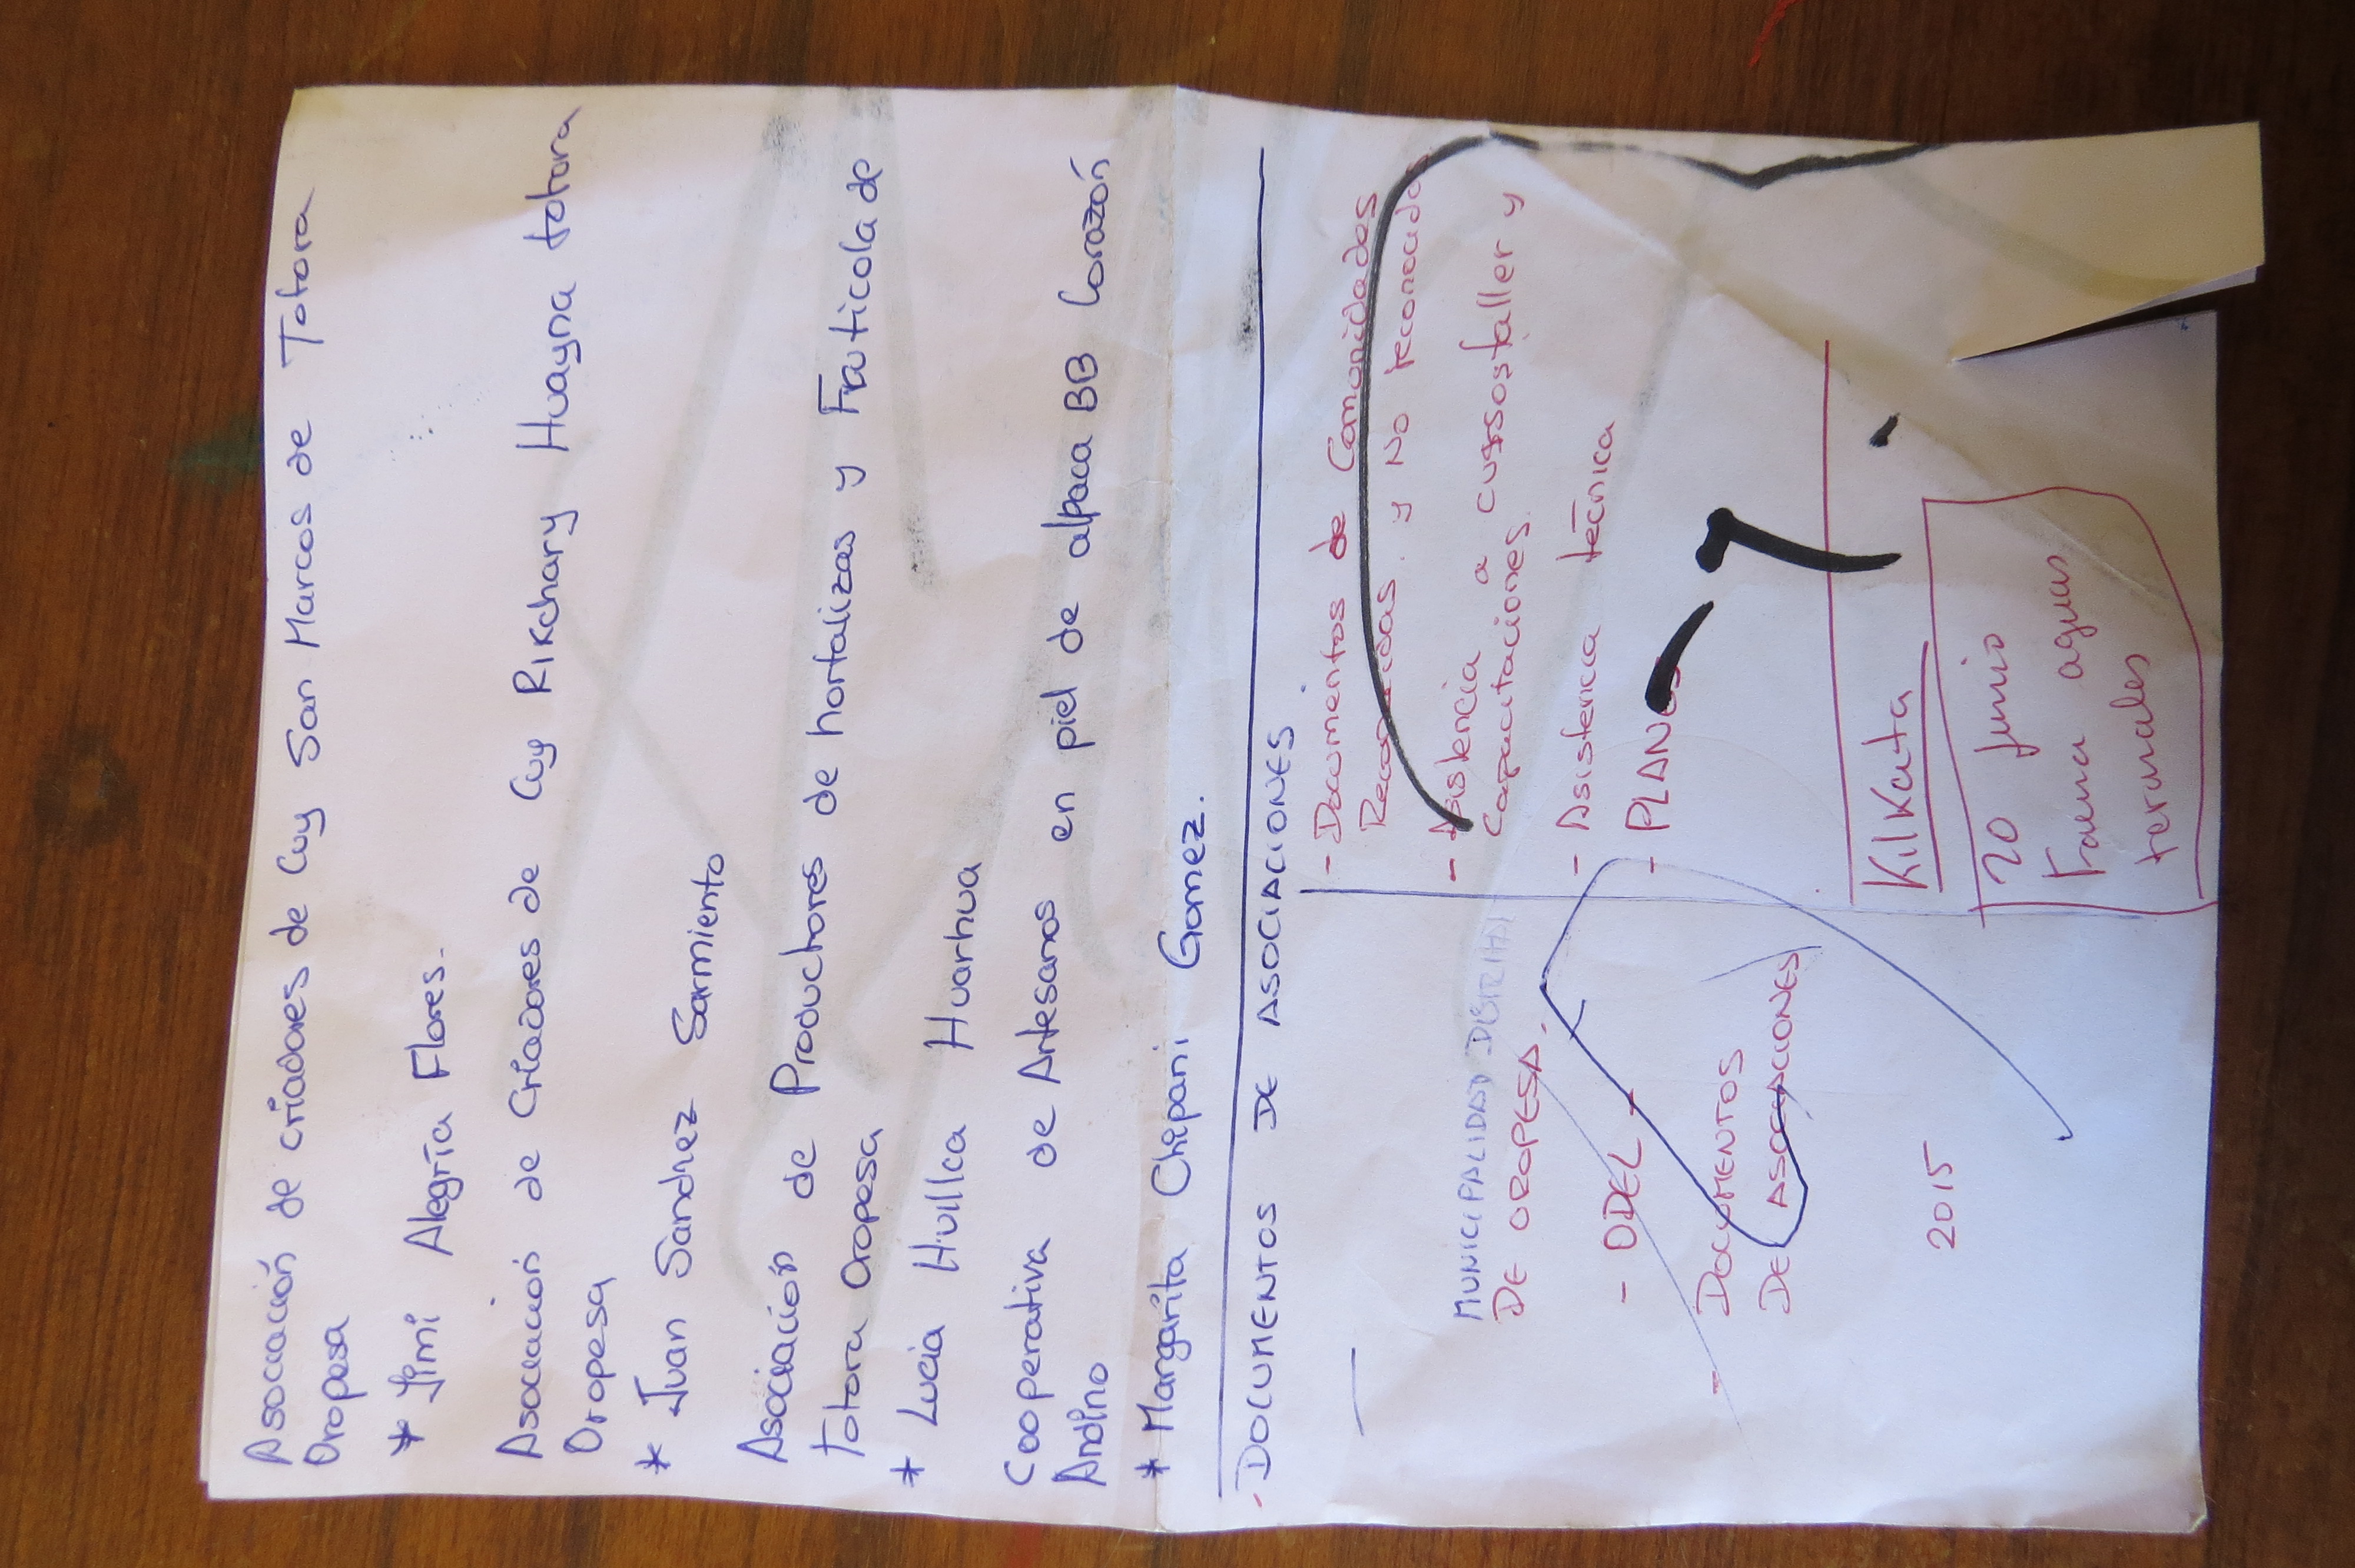 Asociación de criadores de Cuy San Marcos de Totora
Oropesa
* Jimi Alegría Flores.
Asociación de Criadores de Cuy Rikchary Huayna totora
Oropesa
* Juan Sanchez Sarmiento
Asociación de Productores de hortalizas y Fruticola de
totora Oropesa
* Lucia Huillca Huarhua
Cooperativa de Artesanos en piel de alpaca BB Corazón
Andino
* Margarita Chipani Gomez.
- DOCUMENTOS DE ASOCIACIONES
MUNICIPALIDAD DISTRITAL
DE OROPESA.
- ODEL -
- DOCUMENTOS
DE ASOCIACIONES
2015
- Documentos de Comunidades
Reconocidas y No reconocidos
- Asistencia a cursostaller y
Capacitaciones.
- Asistencia técnica
- PLANOS
Kilkata
20 junio
Faena aguas
termales